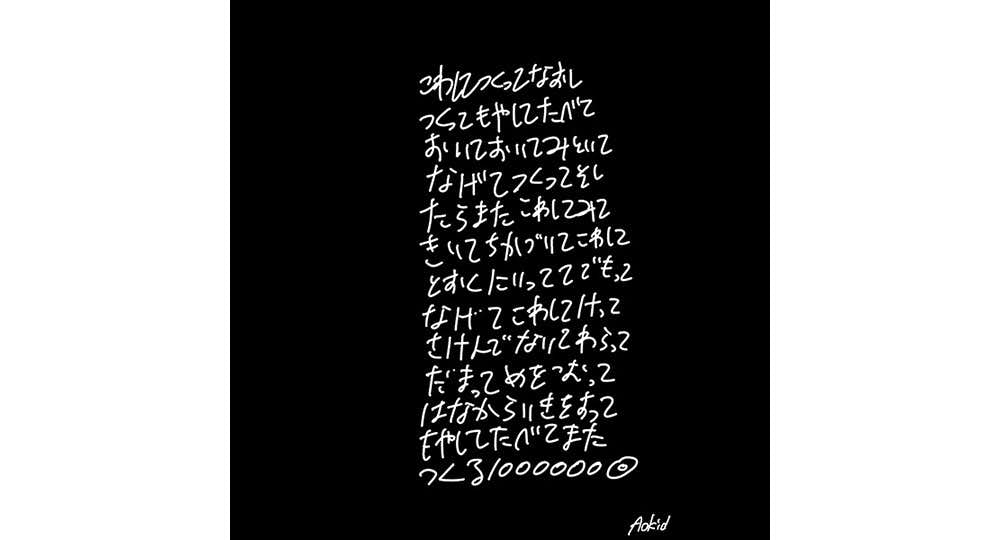 こわしつくってなおし
つくってもやしてたべて
おいておいてみといて
なげてつくってそし
たらまたこわしてみて
きいてちかづいてこわして
とおくにいっててでもって
なげてこわしてけって
さけんでないてわらって
だまってめをつむって
はなからいきをすって
もやしてたべてまた
つくる1000000◎
Aokid